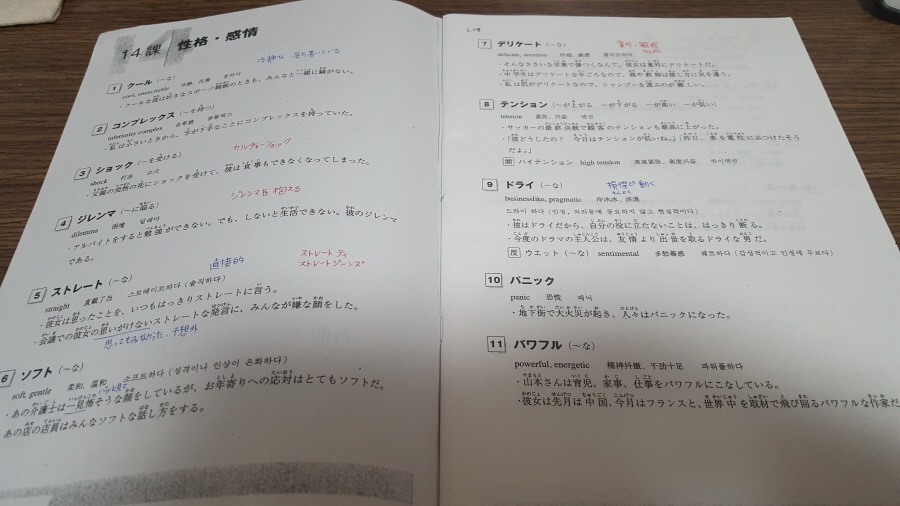 14課 性格・感情
冷静な 落ち着いている
1 クール（～な）
cool, unexcitable
・クールな彼は好きなスポーツ観戦のときも、みんなと一緒に騒がない。
2 コンプレックス（～を持つ）
inferiority complex 自卑感 콤플렉스
・私は小さいときから、字が下手なことにコンプレックスを持っていた。
カルチャーショック
3 ショック（～を受ける）
shock 打击 쇼크
・父親の突然の死にショックを受けて、彼は食事もできなくなってしまった。
ジレンマを抱える
4 ジレンマ（～に陥る）
dilemma 困境 딜레마
・アルバイトをすると勉強ができない。でも、しないと生活できない。彼のジレンマ
である。
直接的
ストレート ティ
ストレートジーンズ
5 ストレート（～な）
straight 直截了当 스트레이트하다 (솔직하다)
・彼女は思ったことを、いつもはっきりストレートに言う。
・会議での彼女の思いがけないストレートな発言に、みんなが嫌な顔をした。
思ってもみなかった 予想外
6 ソフト（～な）
soft, gentle 柔和、温和 소프트하다 (성격이나 인상이 온화하다)
・あの介護士は一見怖そうな顔をしているが、お年寄りへの応対はとてもソフトだ。
あの店の店員はみんなソフトな話し方をする。
L14
7 デリケート（～な）
繊細 敏感
delicate, sensitive 纤细、敏感
・そんなささいな言葉で傷つくなんて。彼女は意外にデリケートだ。
・中学生はデリケートな年ごろなので、親や教師は接し方に気を遣う。
・私は肌がデリケートなので、シャンプーを選ぶのが難しい。
8 テンション（～が上がる ～が下がる ～が高い ～が低い）
tension 紧张、兴奋 텐션
・サッカーの最終決戦で観客のテンションも最高に上がった。
・「彼どうしたの？ 今日はテンションが低いね。」「昨日、車を電柱にぶつけたそう
だよ。」
関 ハイテンション high tension 高度紧张、高度兴奋 하이텐션
9 ドライ（～な）
損得で動く
businesslike, pragmatic 冷冰冰、淡漠
드라이 하다 (인정, 의리 등에 동요하지 않고 현실적이다)
・彼はドライだから、自分の役に立たないことは、はっきり断る。
・今度のドラマの主人公は、友情より出世を取るドライな男だ。
反 ウエット（～な） sentimental 多愁善感 웨트하다 (감성적이고 인정에 무르다)
10 パニック
panic 恐慌 패닉
・地下街で大火災が起き、人々はパニックになった。
11 パワフル（～な）
powerful, energetic 精神抖擞、干劲十足 파워풀하다
・山本さんは育児、家事、仕事をパワフルにこなしている。
・彼女は先月は中国、今月はフランスと、世界中を取材で飛び回るパワフルな作家だ